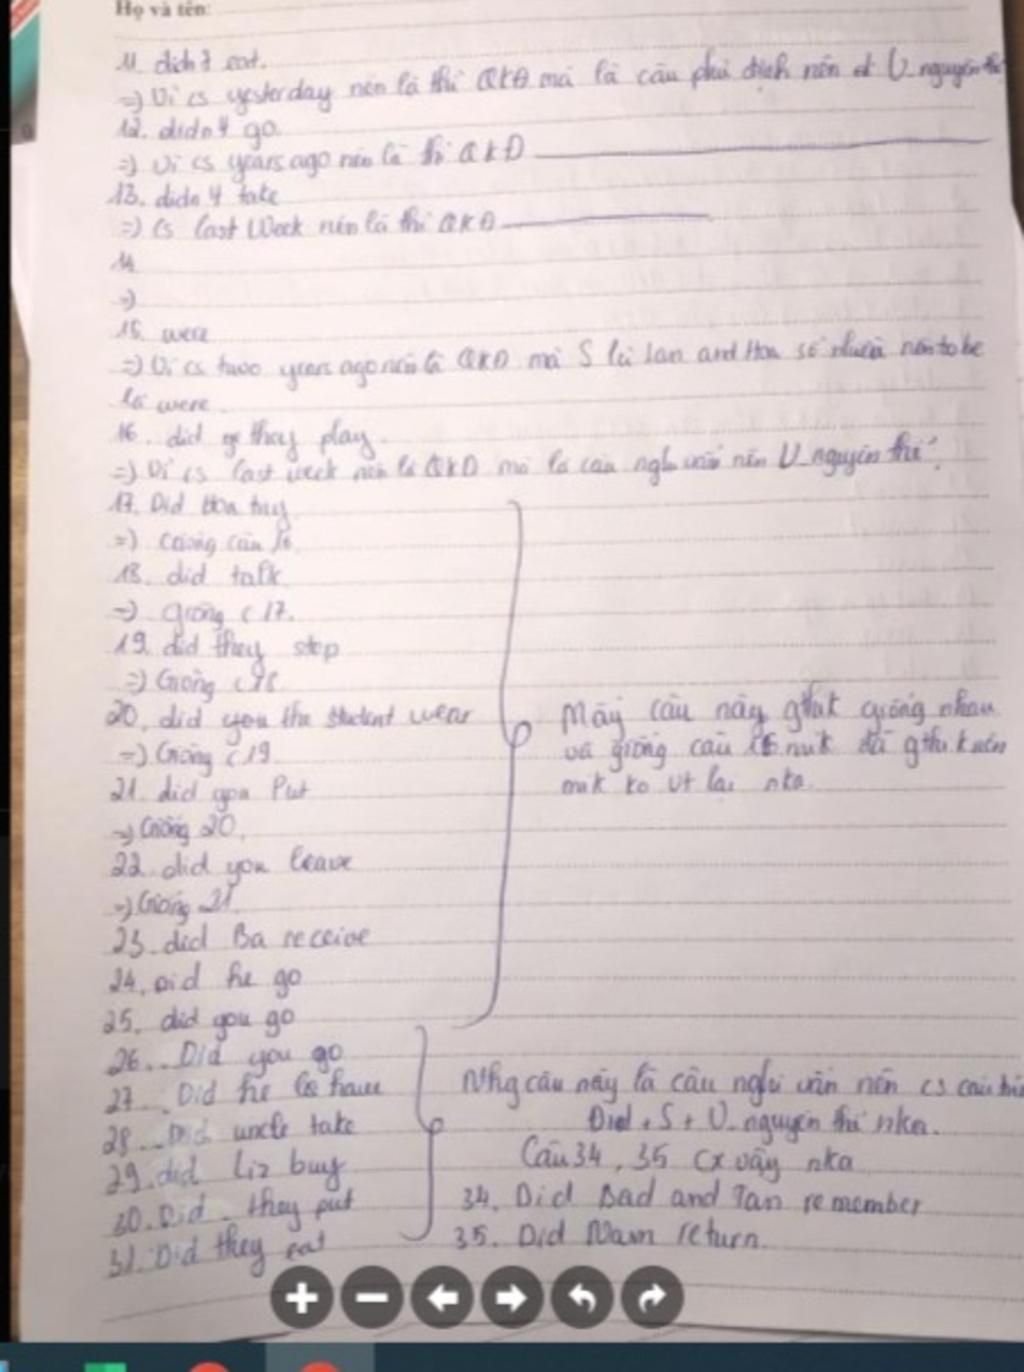 Họ và tên:
11. didn't eat.
=) Vì cs yesterday nên là thì QKĐ mà là câu phủ định nên V_nguyên thể
12. didn't go
=) Vì cs years ago nên là thì QKĐ
13. didn't take
=) Cs last Week nên là thì QKĐ
14
=)
15. were
=) Vì cs two years ago nên là QKĐ mà S là Lan and Hoa số nhiều nên to be
là were.
16. did they play.
=) Vì cs last week nên là QKĐ mà là câu nghi vấn nên V_nguyên thể.
17. Did Hoa buy
=) Giống câu 16
18. did talk
=) giống c 17.
19. did they stop
=) Giống c18
20. did you the student wear
=) Giống c19
21. did you Put
=) Giống 20.
22. did you leave
=) Giống 21.
23. did Ba receive
24. Did he go
25. did you go
Mấy câu này gthik giống nhau
và giống câu 16 mik đã gthik nên
mik ko vt lại nka.
26. Did you go
27. Did he have
28. Did uncle take
29. did Liz buy
30. Did they put
31. Did they eat
Nhg câu này là câu nghi vấn nên cs cấu
Did + S + V_nguyên thể nka.
Câu 34, 35 cx vậy nka
34. Did Bad and Tan remember
35. Did Nam return.